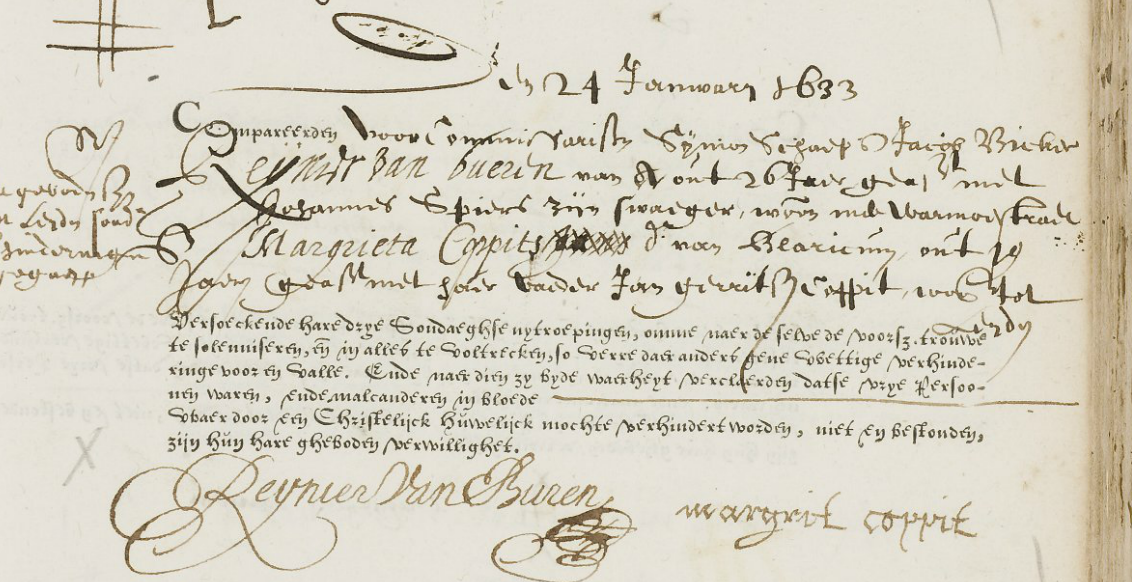 en 24 Januwary 1633
Compareerden voor Commissarissen Symon Schaep & Jacob Bicker
Reynier van bueren van A out 26 Jaer geas met
Johannes Spiers zijn swaeger, woon inde warmoestraet
& Margrieta Coppits d. van Blaricum, out 19
Jaeren geast met haer vaeder Jan gerritsz Coppit, woon tot
Versoeckende hare drye Sondaeghse uytroepingen, omme naer de selve de voorsz. trouwe
te solemniseren, eñ in alles te voltrecken, so verre daer anders gene wettige verhinde-
ringe voor en valle. Ende naer dien zy byde waerheyt verclaerden datse vrye Persoo-
nen waren, ende malcanderen in bloede
Waer door een Christelijck Huwelijck mochte verhindert worden, niet en bestonden,
zijn hun hare gheboden verwillighet.
Reynier Van Buren
margriet coppit